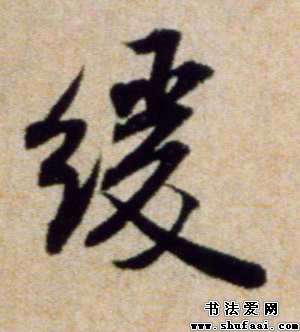 缓
书法爱网
www.shufaai.com